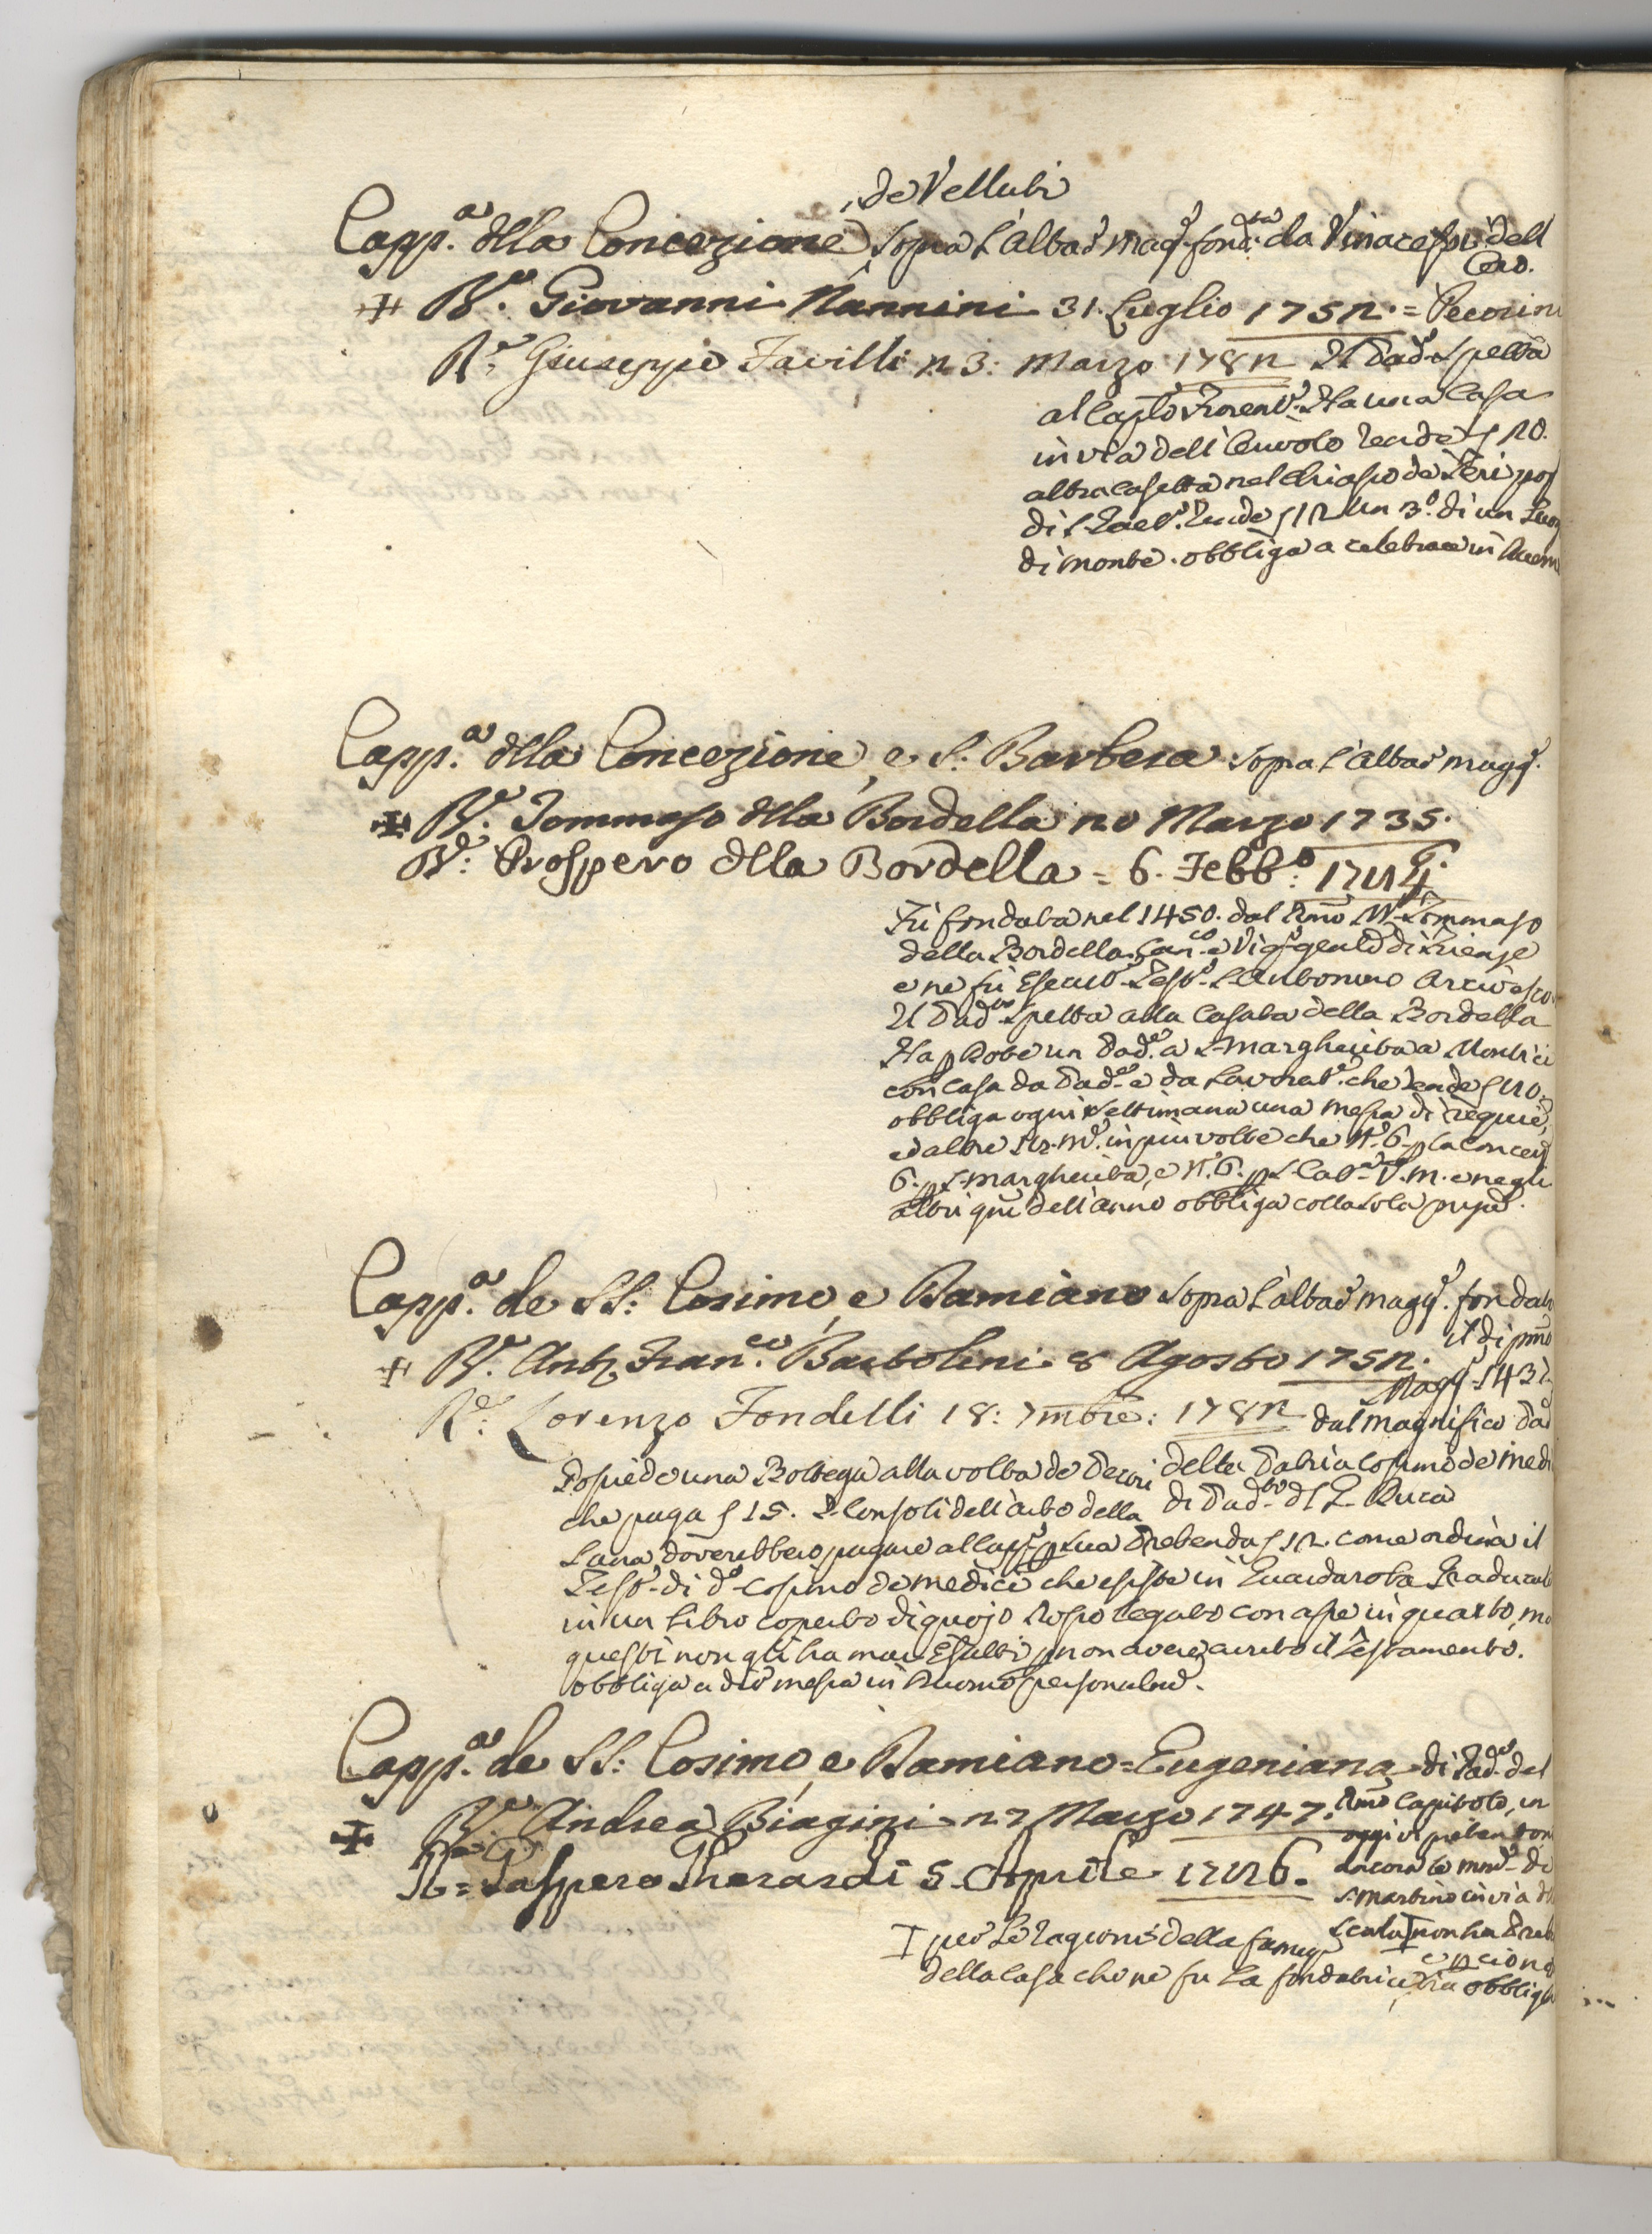 de Velluti
Capp.a dlla Concezione, sopra l'Altar magg.e fond.ta da Vinaccesi dell
Cero.
R.e Giovanni Nannini 31. Luglio 1752. = Pecorini
R.e Giuseppe Favilli 23: Marzo 1782 Il Pad.o spetta
al Capto Fiorent.o Ha una Casa
in via dell'Ariuolo rende s 20.
altra casetta nel Chiasso de
di un Luog
di monte. obbliga a celebrare in
Capp.a dlla Concezione, e S: Barbera sopra l'Altar magg.e
R.e Tommaso dlla Bordella 20 Marzo 1735.
R.e: Prospero dlla Bordella = 6. Febb.o: 1724
Fù fondata nel 1450. dal Rmo M.r Tommaso
della Bordella Can.co e Vic.o genle di Firenze
e ne fù Esecut.e Test.o S. Antonino Arcivesco
Il Pad.to spetta alla Casata della Bordella
Ha p dote un Pod.e a S. Margherita a Montici
con casa da Pad.e e da Lavorat.e che rende s 20.
obbliga ogni settimana una messa di requie,
ed altre in più volte che N.o 6. p la Concez
6. p S. Margherita, e N.o 6. p S. Cat.a V. M. e negli
altri gni dell'anno obbliga colla sola
Capp.a de SS: Cosimo, e Damiano sopra l'altar magg.e fondata
il dì pmo
R.e Ant.o Fran.co Bartolini 8 Agosto 1752.
Magg.o 143
R.e: Lorenzo Fondelli 18: 7mbre: 1782 dal magnifico Pad
Possiede una Bottega alla volta de Pecori della Patria Cosimo de Medi
che paga s 15. I Consoli dell'arte della di Pad.to di S. A. Reale
Lana doverebbero pagare alla Capp.a p sua Prebenda s 12. come ordina il
Test.o di d.o Cosimo de Medici che esiste in Guardaroba
in un Libro coperto di quojo rosso legato con asse in quarto, ma
questi non gli ha mai Esatti p non avere avuto il Testamento.
obbliga a dir messa in Duomo personalm.e
Capp.a de SS: Cosimo, e Damiano = Eugeniana di Pad.o del
Rmo Capitolo, in
R.e Andrea Biagini 27 Marzo 1747.
oggi vi pretendon
R.e = Gaspero Gherardi 5 Aprile 1726.
ancora le mon.e di
S. Martino in via d
Scala non ha Preb
I per le ragioni della famig
della casa che ne fu la fondatrice, ha obbligh